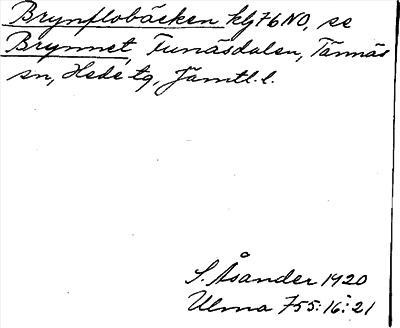 Brynflobäcken kbg76NO, se
Brynnet, Funäsdalen, Tännäs
sn, Hede tg, Jämtl. l.
S. Åsander 1920
Ulma 755:16:21